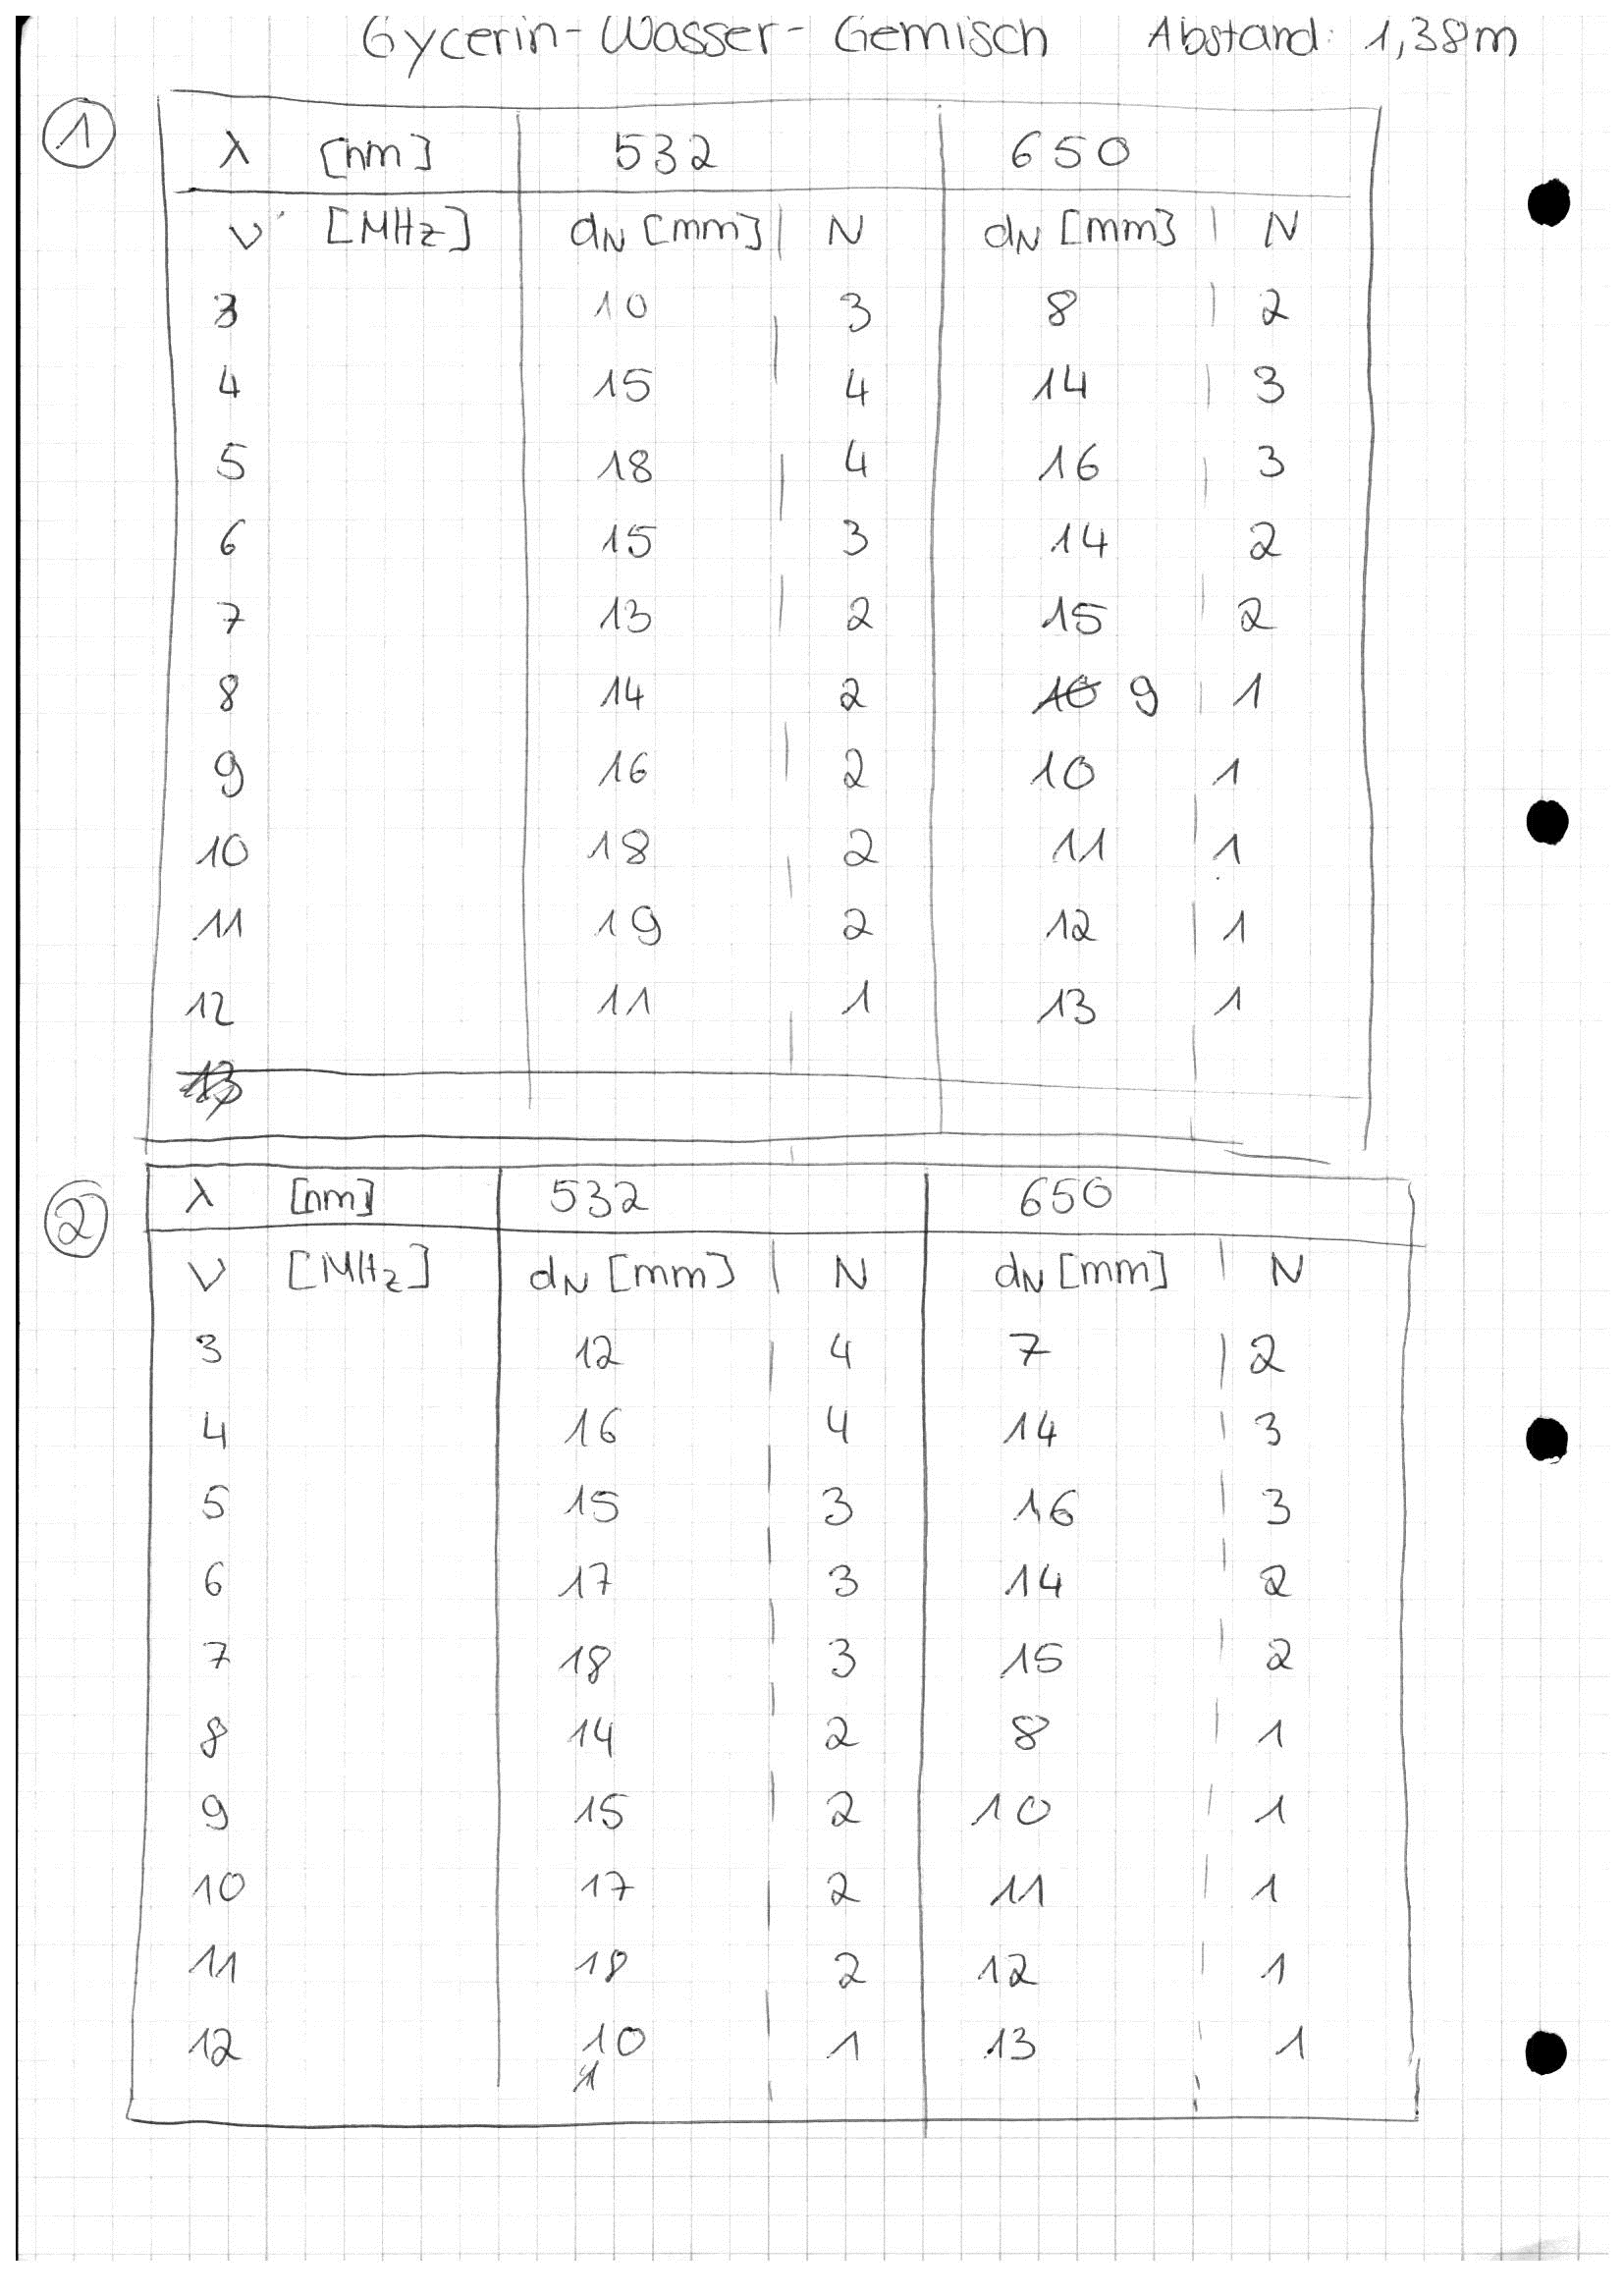 Gycerin-Wasser-Gemisch Abstand: 1,38m
1
λ [nm] 532 650
ν [MHz] dN [mm] N dN [mm] N
3 10 3 8 2
4 15 4 14 3
5 18 4 16 3
6 15 3 14 2
7 13 2 15 2
8 14 2 10 9 1
9 16 2 10 1
10 18 2 11 1
11 19 2 12 1
12 11 1 13 1
13
2
λ [nm] 532 650
ν [MHz] dN [mm] N dN [mm] N
3 12 4 7 2
4 16 4 14 3
5 15 3 16 3
6 17 3 14 2
7 18 3 15 2
8 14 2 8 1
9 15 2 10 1
10 17 2 11 1
11 18 2 12 1
12 10 1 13 1